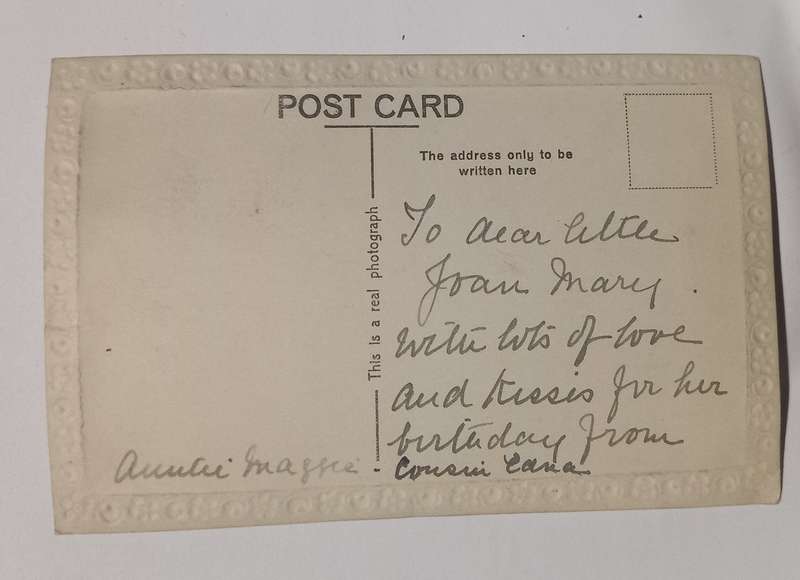 POST CARD
The address only to be
written here
This is a real photograph
To dear little
Joan Mary.
With lots of love
and kisses for her
birthday from
Cousin Edna
Auntie Maggie